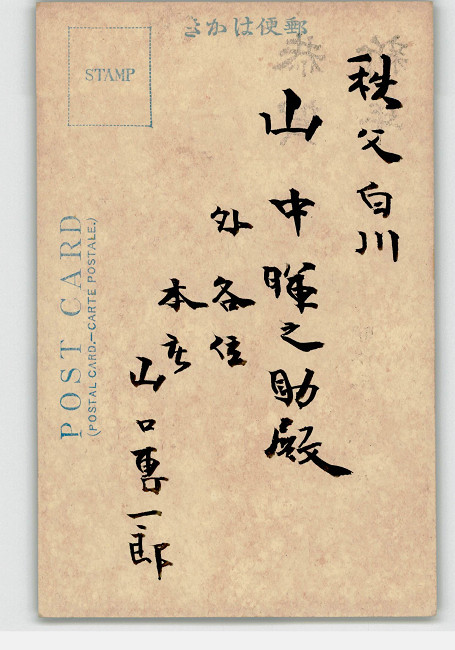 郵便はかき
STAMP
秩父白川
山中暉之助殿
外各位
本庄
山口惠一郎
POST CARD
(POSTAL CARD.—CARTE POSTALE.)